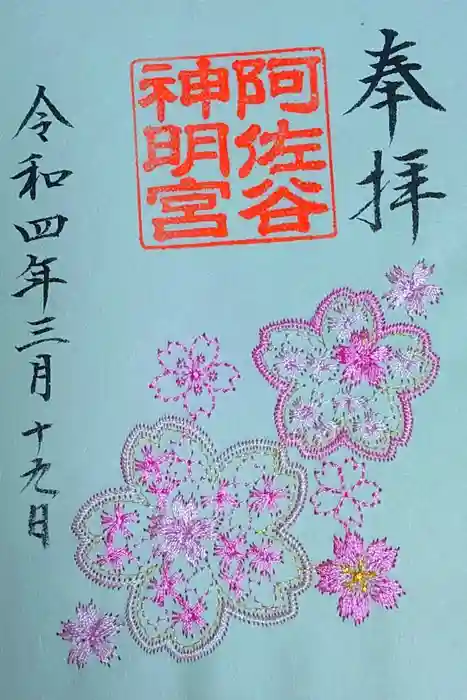 奉拝
阿佐谷
神明宮
令和四年三月十九日